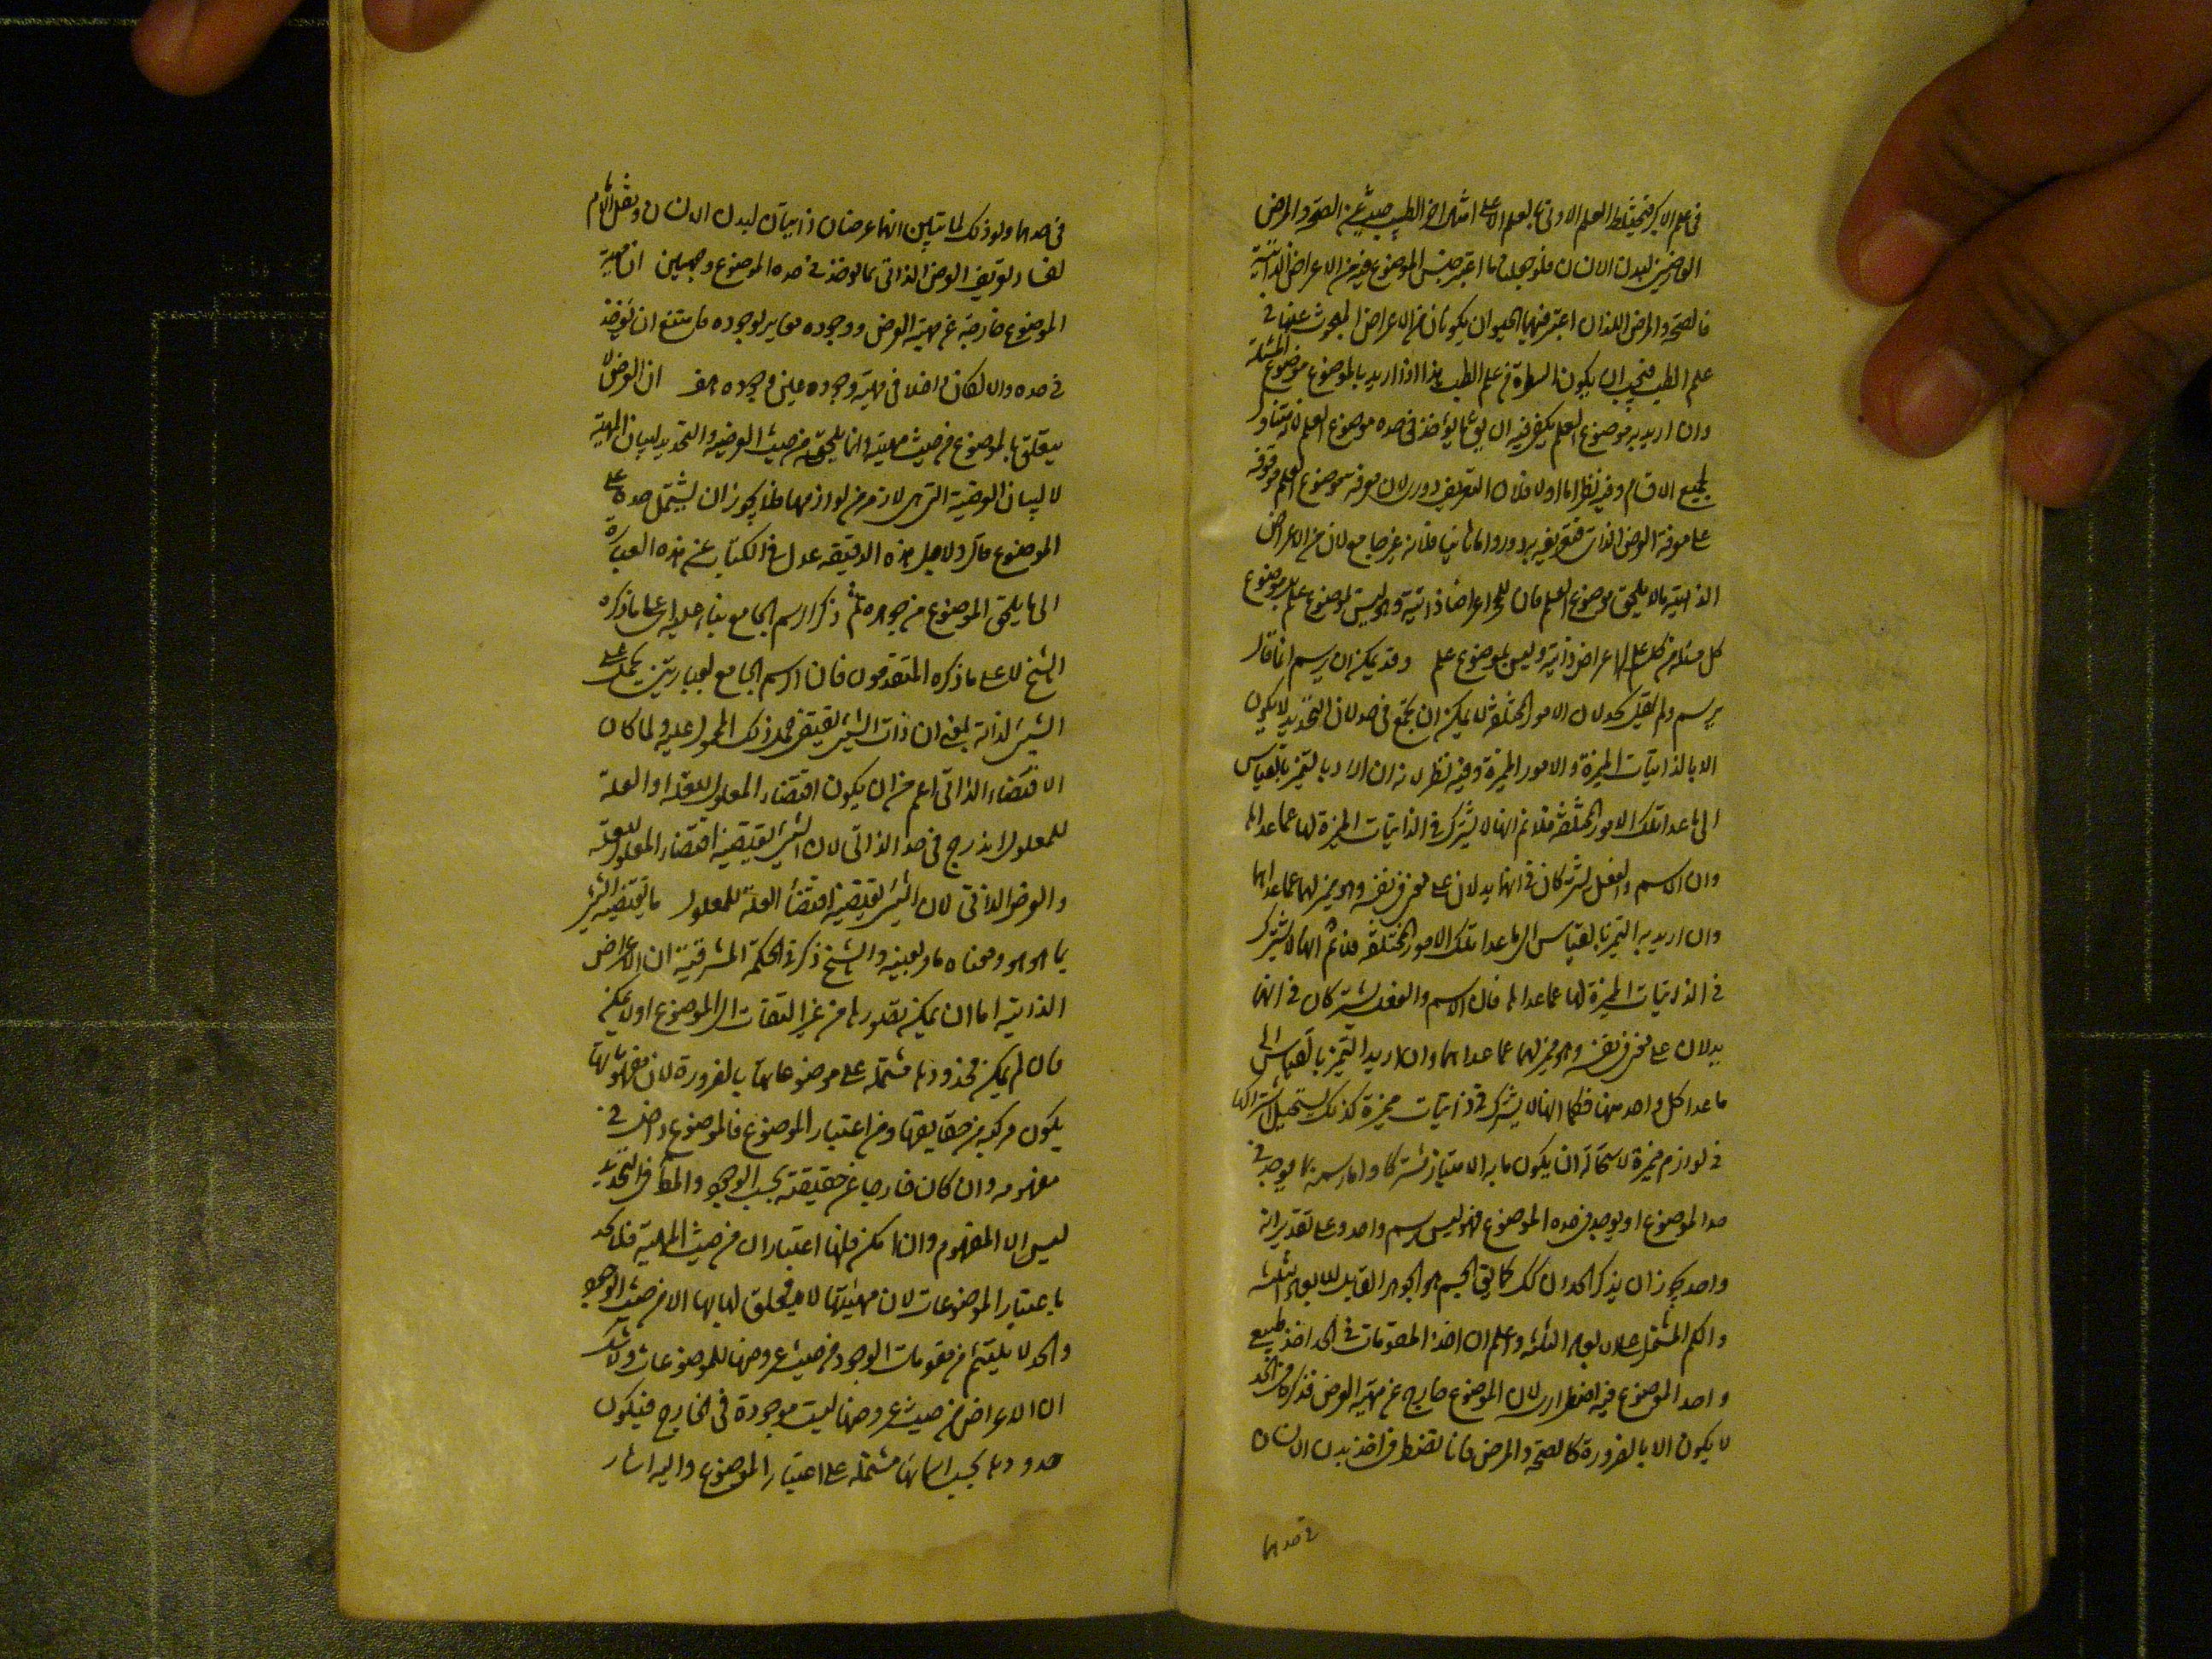 في علم الاكر فيختلط العلم الادنى بالعلم الاعلى مثاله الطبيب يبحث عن الصحة والمرض
العارضين لبدن الانسان فلو جعلنا ما اعتبر جنس الموضوع فيه من الاعراض الذاتية
فالصحة والمرض اللذان اعتبر فيهما الحيوان يكونان من الاعراض المبحوث عنها في
علم الطب فيجب ان يكون البيطرة من علم الطب هذا اذا اريد بالموضوع موضوع المسئلة
وان اريد به موضوع العلم يكفى فيه ان يق ما يؤخذ في حده موضوع العلم فانه متناول
لجميع الاقسام وفيه نظر اما اولا فلان التعريف دورى لان معرفة موضوع العلم موقوفة
على معرفة العرض الذاتى فتعريفه به دور واما ثانيا فلانه غير جامع لان من الاعراض
الذاتية ما لا يلحق موضوع العلم فان للمحمول اعراضا ذاتية وهو ليس لموضوع علم بل موضوع
كل مسئلة من كل علم لها اعراض ذاتية وليس بموضوع علم وقد يمكن ان يرسم انما قال
يرسم ولم يقل يحد لان الامور المختلفة لا يمكن ان يجتمع في حد لان التحديد لا يكون
الا بالذاتيات المميزة والامور المميزة وفيه نظر لانه ان اراد بالتميز بالقياس
الى ما عدا تلك الامور المختلفة فلا نم انها لا يشترك في الذاتيات المميزة لها عما عداها
وان الاسم والفعل يشتركان في انهما يدلان على معنى في نفسه وهو مميز لهما عما عداهما
وان اريد به التميز بالقياس الى ما عدا تلك الامور المختلفة فلا نم انها لا يشترك
في الذاتيات المميزة لها عما عداها فان الاسم والفعل يشتركان في انهما
يدلان على معنى في نفسه وهو مميز لهما عما عداهما وان اريد التميز بالقياس الى
ما عدا كل واحد منها فكما انها لا يشترك في ذاتيات مميزة كذلك يستحيل اشتراكها
في لوازم مميزة لاستحالة ان يكون ما به الامتياز مشتركا واما رسمه بما يوجد في
حد الموضوع او يوجد في حده الموضوع فهو ليس برسم واحد وعلى تقدير انه
واحد يجوز ان يذكر الحد ان كذلك كما يق الجسم هو الجوهر القابل للابعاد الثلثة
والكم المشتمل على الابعاد الثلثة واعلم ان اخذ المقومات في الحد اخذ طبيعى
واخذ الموضوع فيه اضطرارى لان الموضوع خارج عن مهية العرض فذكره في الحد
لا يكون الا بالضرورة كالصحة والمرض فانا نضطر في اخذ بدن الانسان
في حدهما
في حدهما ولو ذلك لما تبين انهما عرضان ذاتيان لبدن الانسان ونقل الامام
لفساد تعريف العرض الذاتى بما يوخذ في حده الموضوع وجهين ان مهية
الموضوع خارجة عن مهية العرض ووجوده مغاير لوجوده فامتنع ان يؤخذ
في حده والا لكان داخلا في مهيته وجوده عين وجوده هف ان العرض لا
يتعلق بالموضوع من حيث مهيته وانما يلحقه من حيث العرضيه والتحديد لبيان المهية
لا لبيان العرضية التى هى لازمة من لوازمها فلا يجوز ان يشتمل حده على
الموضوع قال ولاجل هذه الدقيقة عدل في الكتاب عن هذه العبارة
الى ما يلحق الموضوع من جوهره ثم ذكر الرسم الجامع بناء عليه اى على ما ذكره
الشيخ لا على ما ذكره المتقدمون فان الرسم الجامع لعبارتين يحمل على
الشىء لذاته بمعنى ان ذات الشىء يقتضى حمل ذلك المحمول عليه ولما كان
الاقتضاء الذاتى اعم من ان يكون اقتضاء المعلول للعلة او العلة
للمعلول اندرج في حد الذاتى لان الشىء يقتضيه اقتضاء المعلول للعلة
والعرض الذاتى لان الشىء يقتضيه اقتضاء العلة للمعلول ما يقتضيه الشىء
بما هو هو ومعناه ما مر بعينه والشيخ ذكر في الحكمة المشرقية ان الاعراض
الذاتية اما ان يمكن تصورها من غير التفات الى الموضوع او لا يمكن
فان لم يمكن فحدودها مشتملة على موضوعاتها بالضرورة لان مفهوماتها
يكون مركبة من حقايقها ومن اعتبار الموضوع فالموضوع داخل في
مفهومه وان كان خارجا عن حقيقته بحسب الوجود والمط في التحديد
ليس الا المفهوم وان امكن فلها اعتباران من حيث المهية فلا يحد
باعتبار الموضوعات لان مهياتها لا يتعلق لها بها الا من حيث الوجود
والحد لا يلتئم من مقومات الوجود من حيث عروضها للموضوعات ولا شك
ان الاعراض من حيث عروضها ليست موجودة في الخارج فيكون
حدودها بحسب اسمائها مشتملة على اعتبار الموضوع واليه اشار